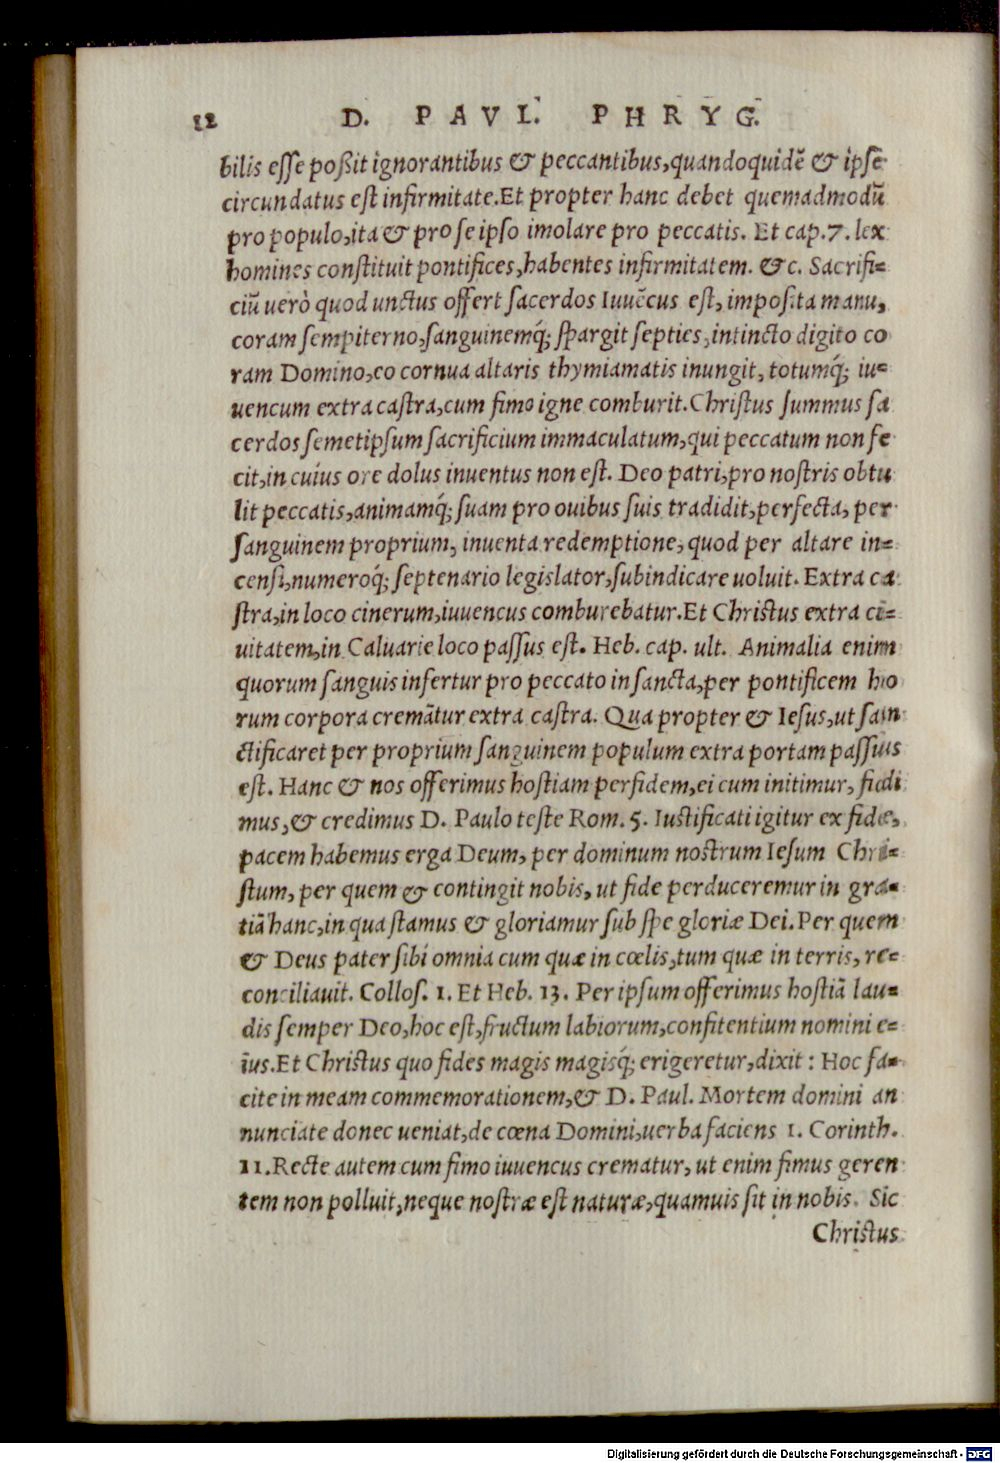 12 D. PAVL. PHRYG.
bilis esse poßit ignorantibus & peccantibus, quandoquidẽ & ipse
circundatus est infirmitate. Et propter hanc debet quemadmodũ
pro populo, ita & pro se ipso imolare pro peccatis. Et cap. 7. lex
homines constituit pontifices, habentes infirmitatem. &c. Sacrifi=
ciũ uerò quod unctus offert sacerdos Iuuẽcus est, imposita manu,
coram sempiterno, sanguinemq́; spargit septies, intincto digito co
ram Domino, eo cornua altaris thymiamatis inungit, totumq́; iu=
uencum extra castra, cum fimo igne comburit. Christus summus sa
cerdos semetipsum sacrificium immaculatum, qui peccatum non fe
cit, in cuius ore dolus inuentus non est. Deo patri, pro nostris obtu
lit peccatis, animamq́; suam pro ouibus suis tradidit, perfecta, per
sanguinem proprium, inuenta redemptione, quod per altare in=
censi, numeroq́; septenario legislator, subindicare uoluit. Extra ca
stra, in loco cinerum, iuuencus comburebatur. Et Christus extra ci=
uitatem, in Caluarie loco passus est. Heb. cap. ult. Animalia enim
quorum sanguis infertur pro peccato in sancta, per pontificem ho
rum corpora cremãtur extra castra. Qua propter & Iesus, ut san
ctificaret per proprium sanguinem populum extra portam passus
est. Hanc & nos offerimus hostiam per fidem, ei cum initimur, fidi
mus, & credimus D. Paulo teste Rom. 5. Iustificati igitur ex fide,
pacem habemus erga Deum, per dominum nostrum Iesum Chri=
stum, per quem & contingit nobis, ut fide perduceremur in gra=
tiã hanc, in qua stamus & gloriamur sub spe gloriæ Dei. Per quem
& Deus pater sibi omnia cum quæ in cœlis, tum quæ in terris, re=
conciliauit. Collos. 1. Et Heb. 13. Per ipsum offerimus hostiã lau=
dis semper Deo, hoc est, fructum labiorum, confitentium nomini e=
ius. Et Christus quo fides magis magisq́; erigeretur, dixit : Hoc fa=
cite in meam commemorationem, & D. Paul. Mortem domini an
nunciate donec ueniat, de cœna Domini, uerba faciens 1. Corinth.
11. Recte autem cum fimo iuuencus crematur, ut enim fimus geren
tem non polluit, neque nostræ est naturæ, quamuis sit in nobis. Sic
Christus
Digitalisierung gefördert durch die Deutsche Forschungsgemeinschaft - DFG